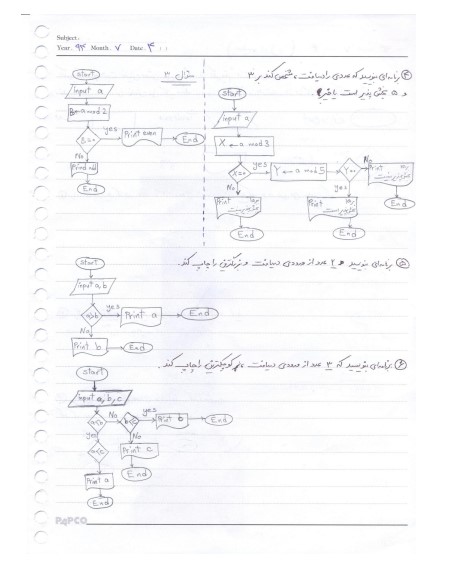 Subject:
Year. 94 Month. 7 Date. 4
سؤال ۳
start
Input a
B ← a mod 2
B=0
yes
Print even
End
No
Print odd
End
④ برنامه‌ای بنویسید که عددی را دریافت ، مشخص کند بر ۳
و ۵ بخش پذیر است یا خیر؟
start
Input a
X ← a mod 3
X=0
yes
Y ← a mod 5
Y=0
No
Print
End
No
Print
End
yes
Print
End
⑤ برنامه‌ای بنویسید ۲ عدد از ورودی دریافت و بزرگترین را چاپ کند.
start
Input a,b
a>b
yes
Print a
End
No
Print b
End
⑥ برنامه‌ای بنویسید که ۳ عدد از ورودی دریافت ، کوچکترین را چاپ کند.
start
Input a,b,c
a<b
No
b<c
yes
Print b
End
No
Print c
End
yes
a<c
Print a
End
PAPCO